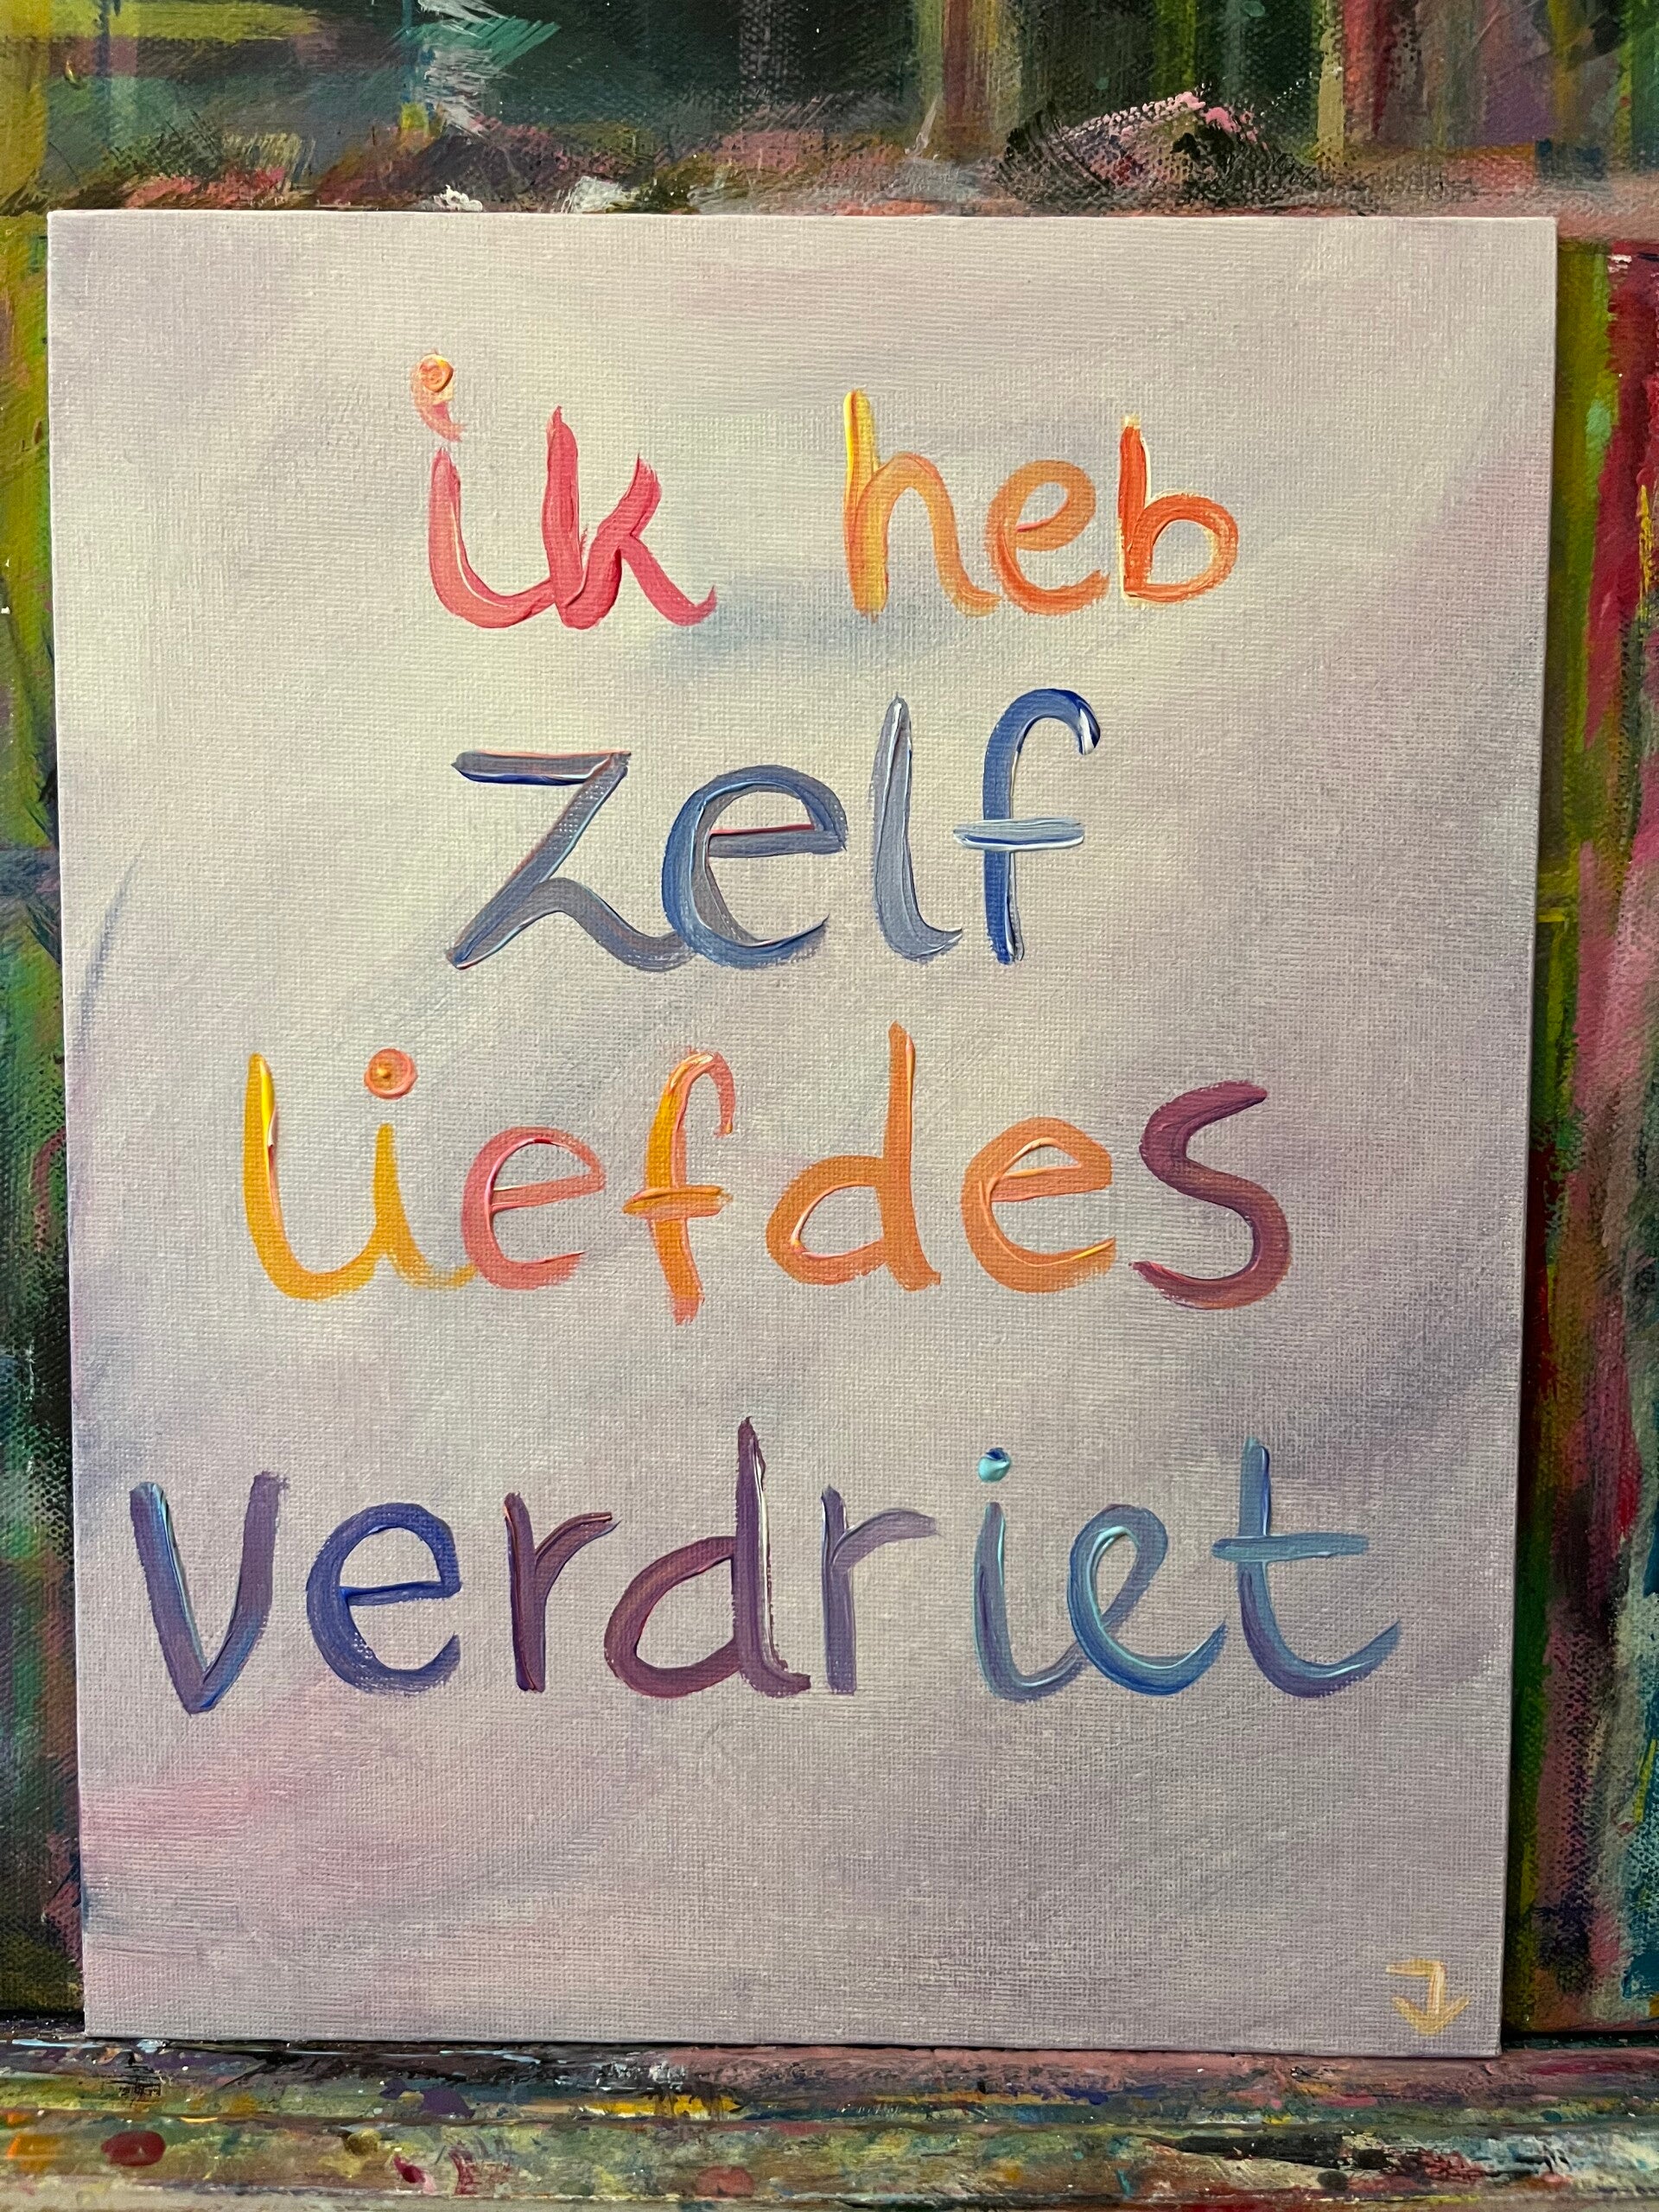 ik heb
zelf
liefdes
verdriet